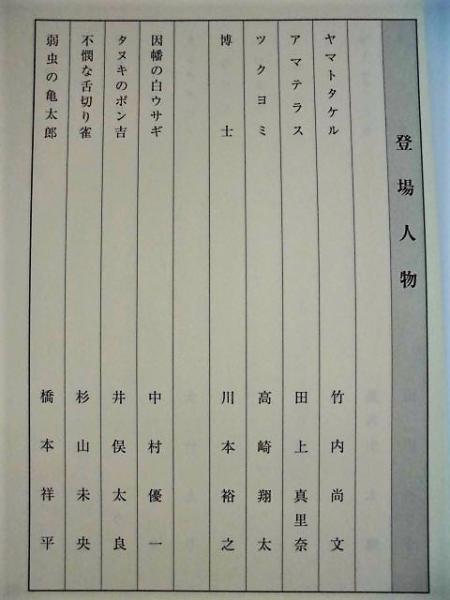 登場人物
ヤマトタケル 竹内尚文
アマテラス 田上真里奈
ツクヨミ 高崎翔太
博士 川本裕之
因幡の白ウサギ 中村優一
タヌキのポン吉 井俣太良
不憫な舌切り雀 杉山未央
弱虫の亀太郎 橋本祥平